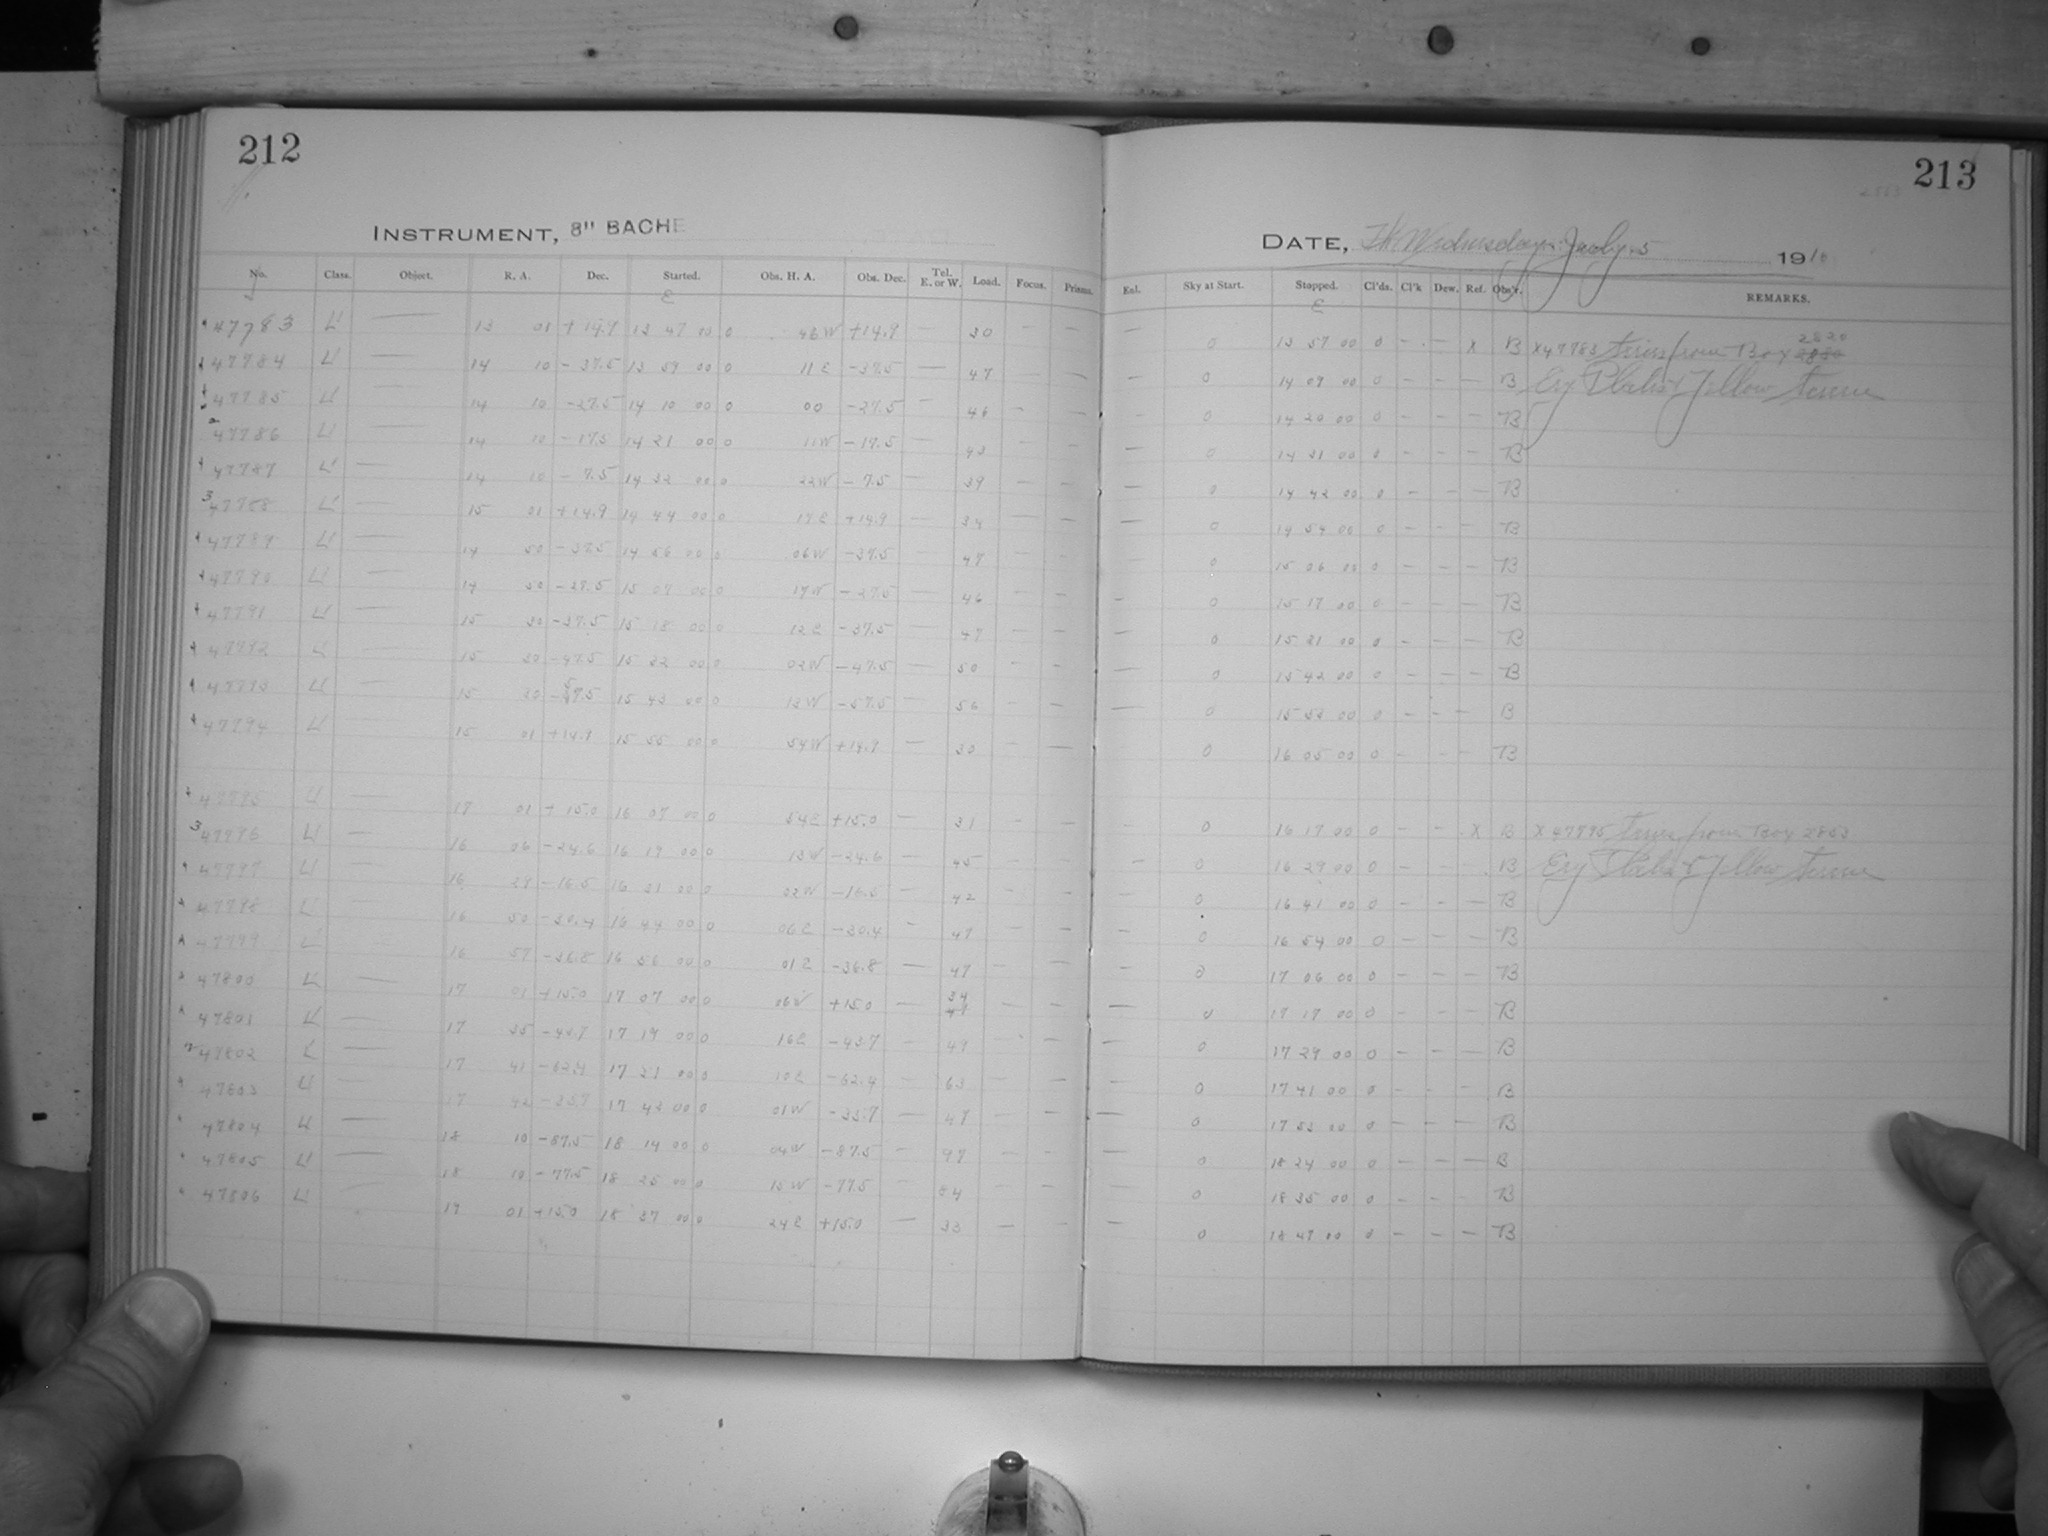 212
INSTRUMENT, 8" BACHE
No. Class. Object. R. A. Dec. Started. Obs. H. A. Obs. Dec. Tel. E. or W. Load. Focus. Prisms.
E
47783 L — 13 01 +14.9 13 47 00 0 46W +14.9 — 30 — —
47784 L — 14 10 -37.5 13 59 00 0 11E -37.5 — 47 — —
47785 L — 14 10 -27.5 14 10 00 0 00 -27.5 — 46 — —
47786 L — 14 10 -17.5 14 21 00 0 11W -17.5 — 43 — —
47787 L — 14 10 -7.5 14 32 00 0 22W -7.5 — 39 — —
3 47788 L — 15 01 +14.9 14 44 00 0 17E +14.9 — 34 — —
47789 L — 14 50 -37.5 14 56 00 0 06W -37.5 — 47 — —
47790 L — 14 50 -27.5 15 07 00 0 17W -27.5 — 46 — —
47791 L — 15 30 -37.5 15 18 00 0 12E -37.5 — 47 — —
47792 L — 15 30 -47.5 15 32 00 0 02W -47.5 — 50 — —
47793 L — 15 30 -57.5 15 43 00 0 13W -57.5 — 56 — —
47794 L — 15 01 +14.9 15 55 00 0 54W +14.9 — 30 — —
47795 L — 17 01 +15.0 16 07 00 0 54E +15.0 — 31 — —
3 47796 L — 16 06 -24.6 16 19 00 0 13W -24.6 — 45 — —
47797 L — 16 29 -16.5 16 31 00 0 02W -16.5 — 42 — —
47798 L — 16 50 -30.4 16 44 00 0 06E -30.4 — 47 — —
47799 L — 16 57 -36.8 16 56 00 0 01E -36.8 — 47
47800 L — 17 01 +15.0 17 07 00 0 06W +15.0 — 34 — —
47801 L — 17 35 -43.7 17 19 00 0 16E -43.7 — 49 — —
47802 L — 17 41 -62.4 17 31 00 0 10E -62.4 — 63 — —
47803 L — 17 42 -33.7 17 43 00 0 01W -33.7 — 47 — —
47804 L — 18 10 -87.5 18 14 00 0 04W -87.5 — 97 — —
47805 L — 18 10 -77.5 18 25 00 0 15W -77.5 — 84 — —
47806 L — 19 01 +15.0 18 37 00 0 24E +15.0 — 33 — —
213
DATE, Wednesday July 5 1916
Eol. Sky at Start. Stopped. Cl'ds. Cl'k Dew. Ref. Obs'r. REMARKS.
E
— 0 13 57 00 0 — — X B X47783 Series from Box 2820
— 0 14 09 00 0 — — — B Ery Plates & Yellow Screen
— 0 14 20 00 0 — — — B
— 0 14 31 00 0 — — — B
— 0 14 42 00 0 — — — B
— 0 14 54 00 0 — — — B
— 0 15 06 00 0 — — — B
— 0 15 17 00 0 — — — B
— 0 15 31 00 0 — — — B
— 0 15 42 00 0 — — — B
— 0 15 53 00 0 — — — B
0 16 05 00 0 — — — B
— 0 16 17 00 0 — — X B X 47795 Series from Box 2853
— 0 16 29 00 0 — — — B Ery Plates & Yellow Screen
— 0 16 41 00 0 — — — B
— 0 16 54 00 0 — — — B
— 0 17 06 00 0 — — — B
— 0 17 17 00 0 — — — B
— 0 17 29 00 0 — — — B
0 17 41 00 0 — — — B
— 0 17 53 00 0 — — — B
— 0 18 24 00 0 — — — B
— 0 18 35 00 0 — — — B
— 0 18 47 00 0 — — — B